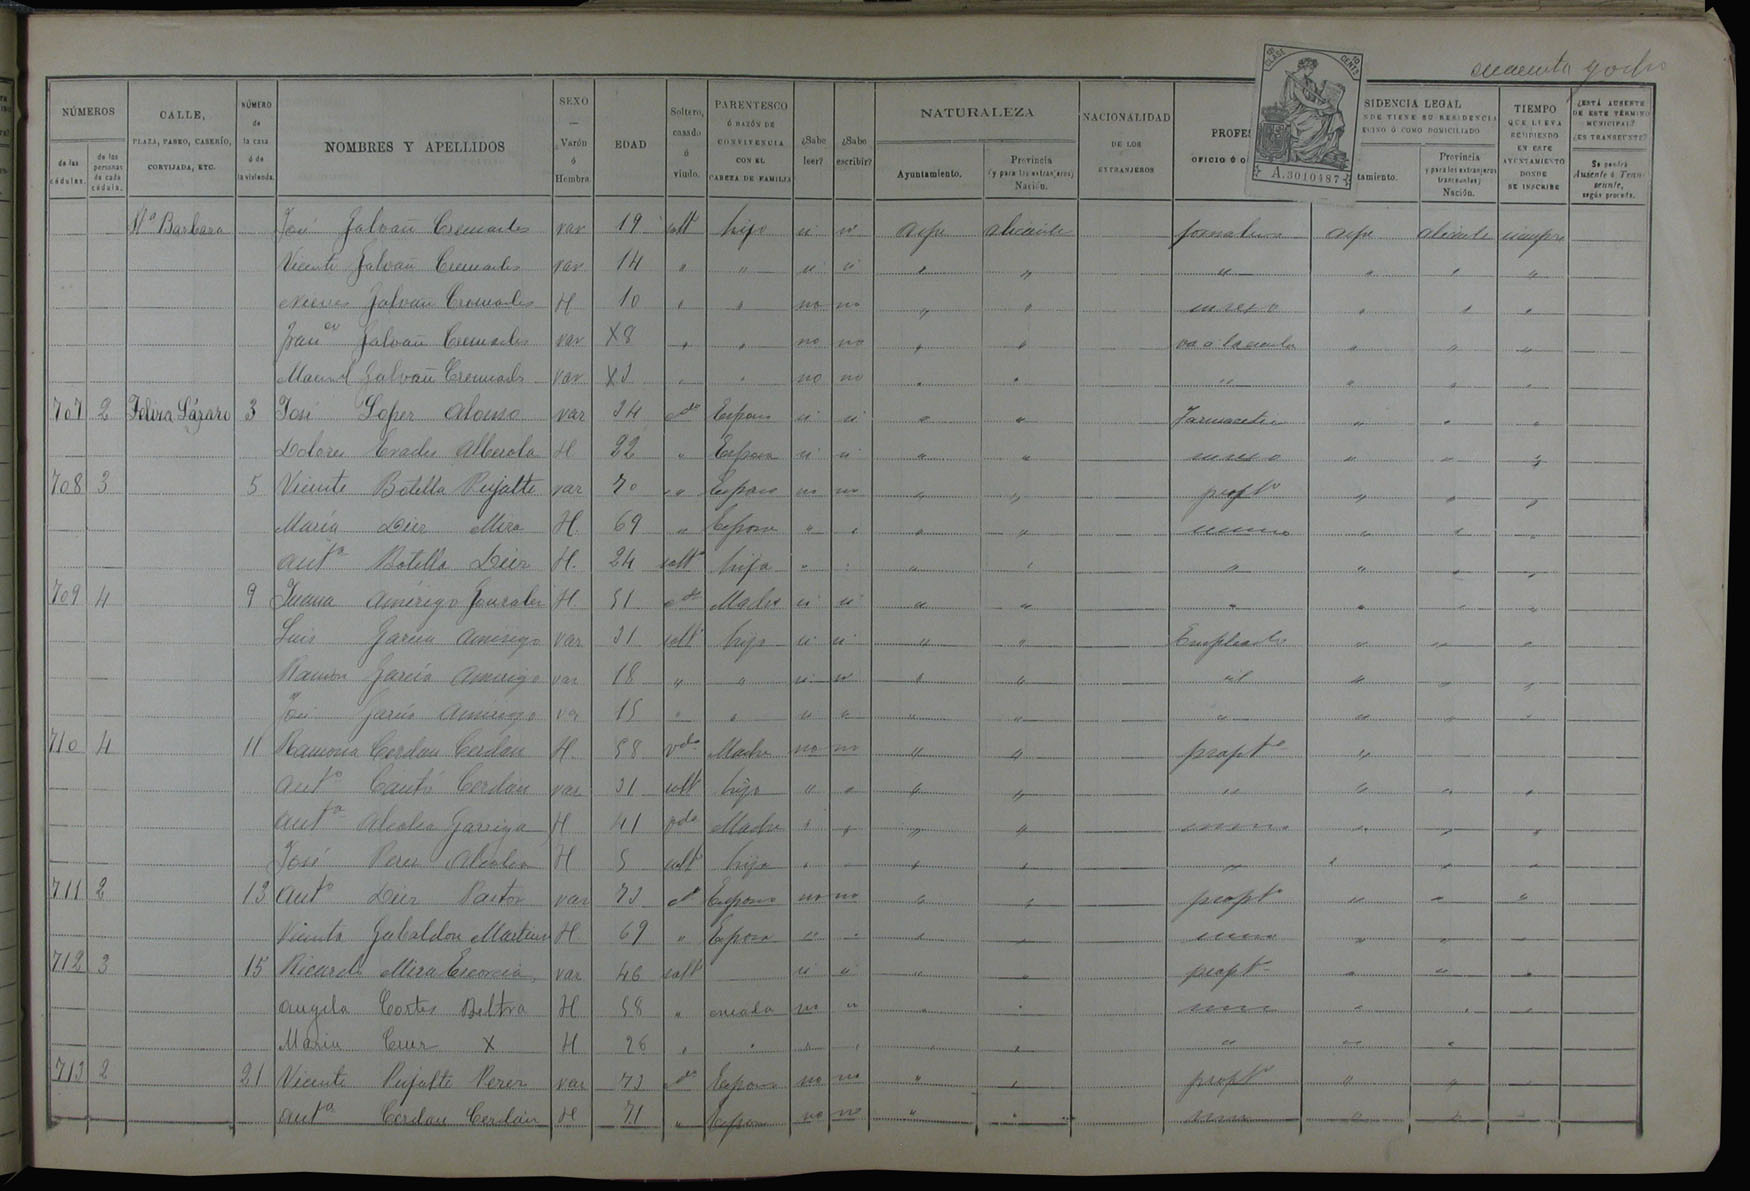 cincuenta y ocho
8ª CLASE 10 CENTS
A.3010487
NÚMEROS
de las cédulas.
de las personas de cada cédula.
CALLE, PLAZA, PASEO, CASERÍO, CORTIJADA, ETC.
NÚMERO de la casa ó de la vivienda.
NOMBRES Y APELLIDOS
SEXO — Varón ó Hembra
EDAD
Soltero, casado ó viudo.
PARENTESCO Ó RAZÓN DE CONVIVENCIA CON EL CABEZA DE FAMILIA
¿Sabe leer?
¿Sabe escribir?
NATURALEZA
Ayuntamiento.
Provincia (y para los extranjeros) Nación.
NACIONALIDAD DE LOS EXTRANJEROS
PROFES
OFICIO Ó O
SIDENCIA LEGAL
NDE TIENE SU RESIDENCIA
ECINO Ó COMO DOMICILIADO
tamiento.
Provincia y para los extranjeros transeuntes) Nación.
TIEMPO QUE LLEVA RESIDIENDO EN ESTE AYUNTAMIENTO DONDE SE INSCRIBE
¿ESTÁ AUSENTE DE ESTE TÉRMINO MUNICIPAL? ¿ES TRANSEUNTE?
Se pondrá Ausente ó Transeunte, según proceda.
Sta Barbara José Galvañ Cremades var 19 solt hijo si si Aspe Alicante jornalero Aspe Alicante siempre
Vicente Galvañ Cremades var 14 " " si si " " " " " "
Nieves Galvañ Cremades H 10 " " no no " " su sexo " " "
Franco Galvañ Cremades var X8 " " no no " " va a la escuela " " "
Manuel Galvañ Cremades var X3 " " no no " " " " " "
707 2 Felisa Lázaro 3 José Lopez Alonso var 34 cdo Esposo si si " " Farmaceutico " " "
Dolores Alberola H 22 " Esposa si si " " su sexo " " "
708 3 5 Vicente Botella Pujalte var 70 " Esposo no no " " propto " " "
María Diez Mira H. 69 " Esposa " " " " " " "
Anta Botella Diez H. 24 solta hija " " " " " " " "
709 4 9 Juana Amérigo Gonzalez H. 51 Madre si si " " " " " "
Luis García Amérigo var 31 solt hijo si si " " Empleado " " "
Ramón García Amérigo var 18 " " si si " " " " "
José García Amérigo var 15 " " si " " " " " " "
710 4 11 Ramona Cerdán Cerdán H. 58 vda Madre no no " " propta "
Anto Cantó Cerdán var 31 solt hijo " " " " " " " "
Anta Alcolea Garriga H 41 vda Madre " " " " " " "
José Perez Alcolea H 5 solt hijo " " " " " " " "
711 2 13 Anto Diez Pastor var 73 cdo Esposo no no " " propto " " "
Vicenta Gabaldon Martinez H 69 " Esposa " " " " " " "
712 3 15 Ricardo Mira Escorcia var 46 solt si si " " propto " " "
Angela Cortes Beltra H 58 " criada no " " " " " "
Maria Cruz X H 26 " " " " " " " " "
713 2 21 Vicente Pujalte Perez var 73 cdo Esposo no no " " propto " " "
Anta Cerdan Cerdán H 71 " Esposa no no " " " " "